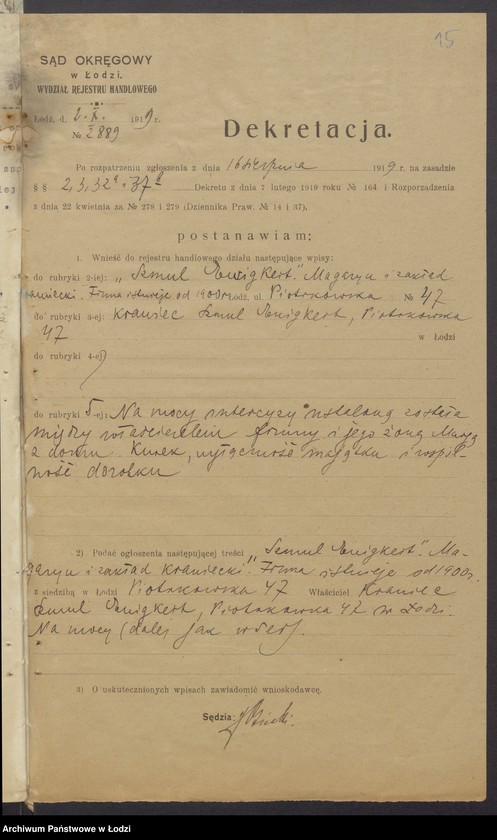 15
SĄD OKRĘGOWY
w Łodzi.
WYDZIAŁ REJESTRU HANDLOWEGO
Łódź, d. 2.X. 1919 r.
№ 2889
Dekretacja.
Po rozpatrzeniu zgłoszenia z dnia 16 sierpnia 1919 r. na zasadzie
§ § 2, 3, 32 i 37 Dekretu z dnia 7 lutego 1919 roku № 164 i Rozporządzenia
z dnia 22 kwietnia za № 278 i 279 (Dziennika Praw. № 14 i 37).
postanawiam:
1. Wnieść do rejestru handlowego działu następujące wpisy:
do rubryki 2-iej: „Szmul Ewigkert". Magazyn i zakład
krawiecki. Firma istnieje od 1900 r. Łódź, ul. Piotrkowska № 47
do rubryki 3-ej: Krawiec Szmul Ewigkert, Piotrkowska
47 w Łodzi
do rubryki 4-ej
do rubryki 5-ej: Na mocy intercyzy ustaloną została
między właścicielem firmy i jego żoną
z domu Kurek, wyłączność majątku i wspól-
ność dorobku
2) Podać ogłoszenia następującej treści „Szmul Ewigkert". Ma-
gazyn i zakład krawiecki". Firma istnieje od 1900 r.
z siedzibą w Łodzi Piotrkowska 47 Właściciel Krawiec
Szmul Ewigkert, Piotrkowska 47 w Łodzi.
Na mocy (dalej jak w 5 ej).
3) O uskutecznionych wpisach zawiadomić wnioskodawcę.
Sędzia:
Archiwum Państwowe w Łodzi